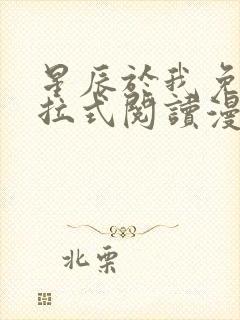 星辰於我免
拉式閱讀漫
北栗